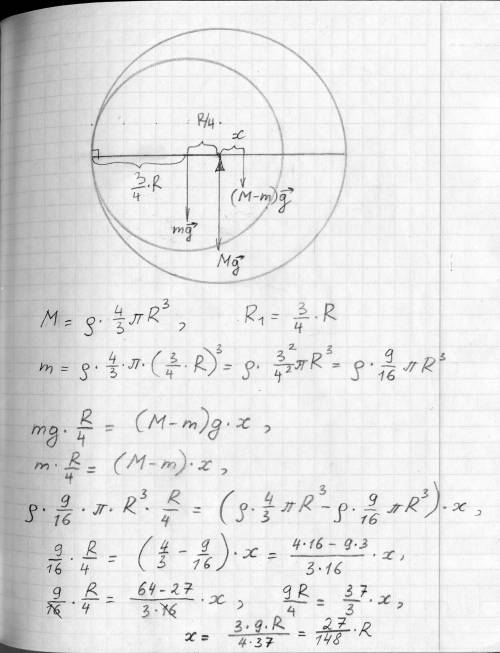 R/4
x
3/4 · R
(M-m)g⃗
mg⃗
Mg⃗
M = ρ · 4/3 πR³, R₁ = 3/4 · R
m = ρ · 4/3 · π · (3/4 · R)³ = ρ · 3²/4² πR³ = ρ · 9/16 πR³
mg · R/4 = (M-m)g · x,
m · R/4 = (M-m) · x,
ρ · 9/16 · π · R³ · R/4 = (ρ · 4/3 πR³ - ρ · 9/16 πR³) · x,
9/16 · R/4 = (4/3 - 9/16) · x = (4·16 - 9·3)/(3·16) · x,
9/16 · R/4 = (64-27)/(3·16) · x, 9R/4 = 37/3 · x,
x = (3·9·R)/(4·37) = 27/148 · R